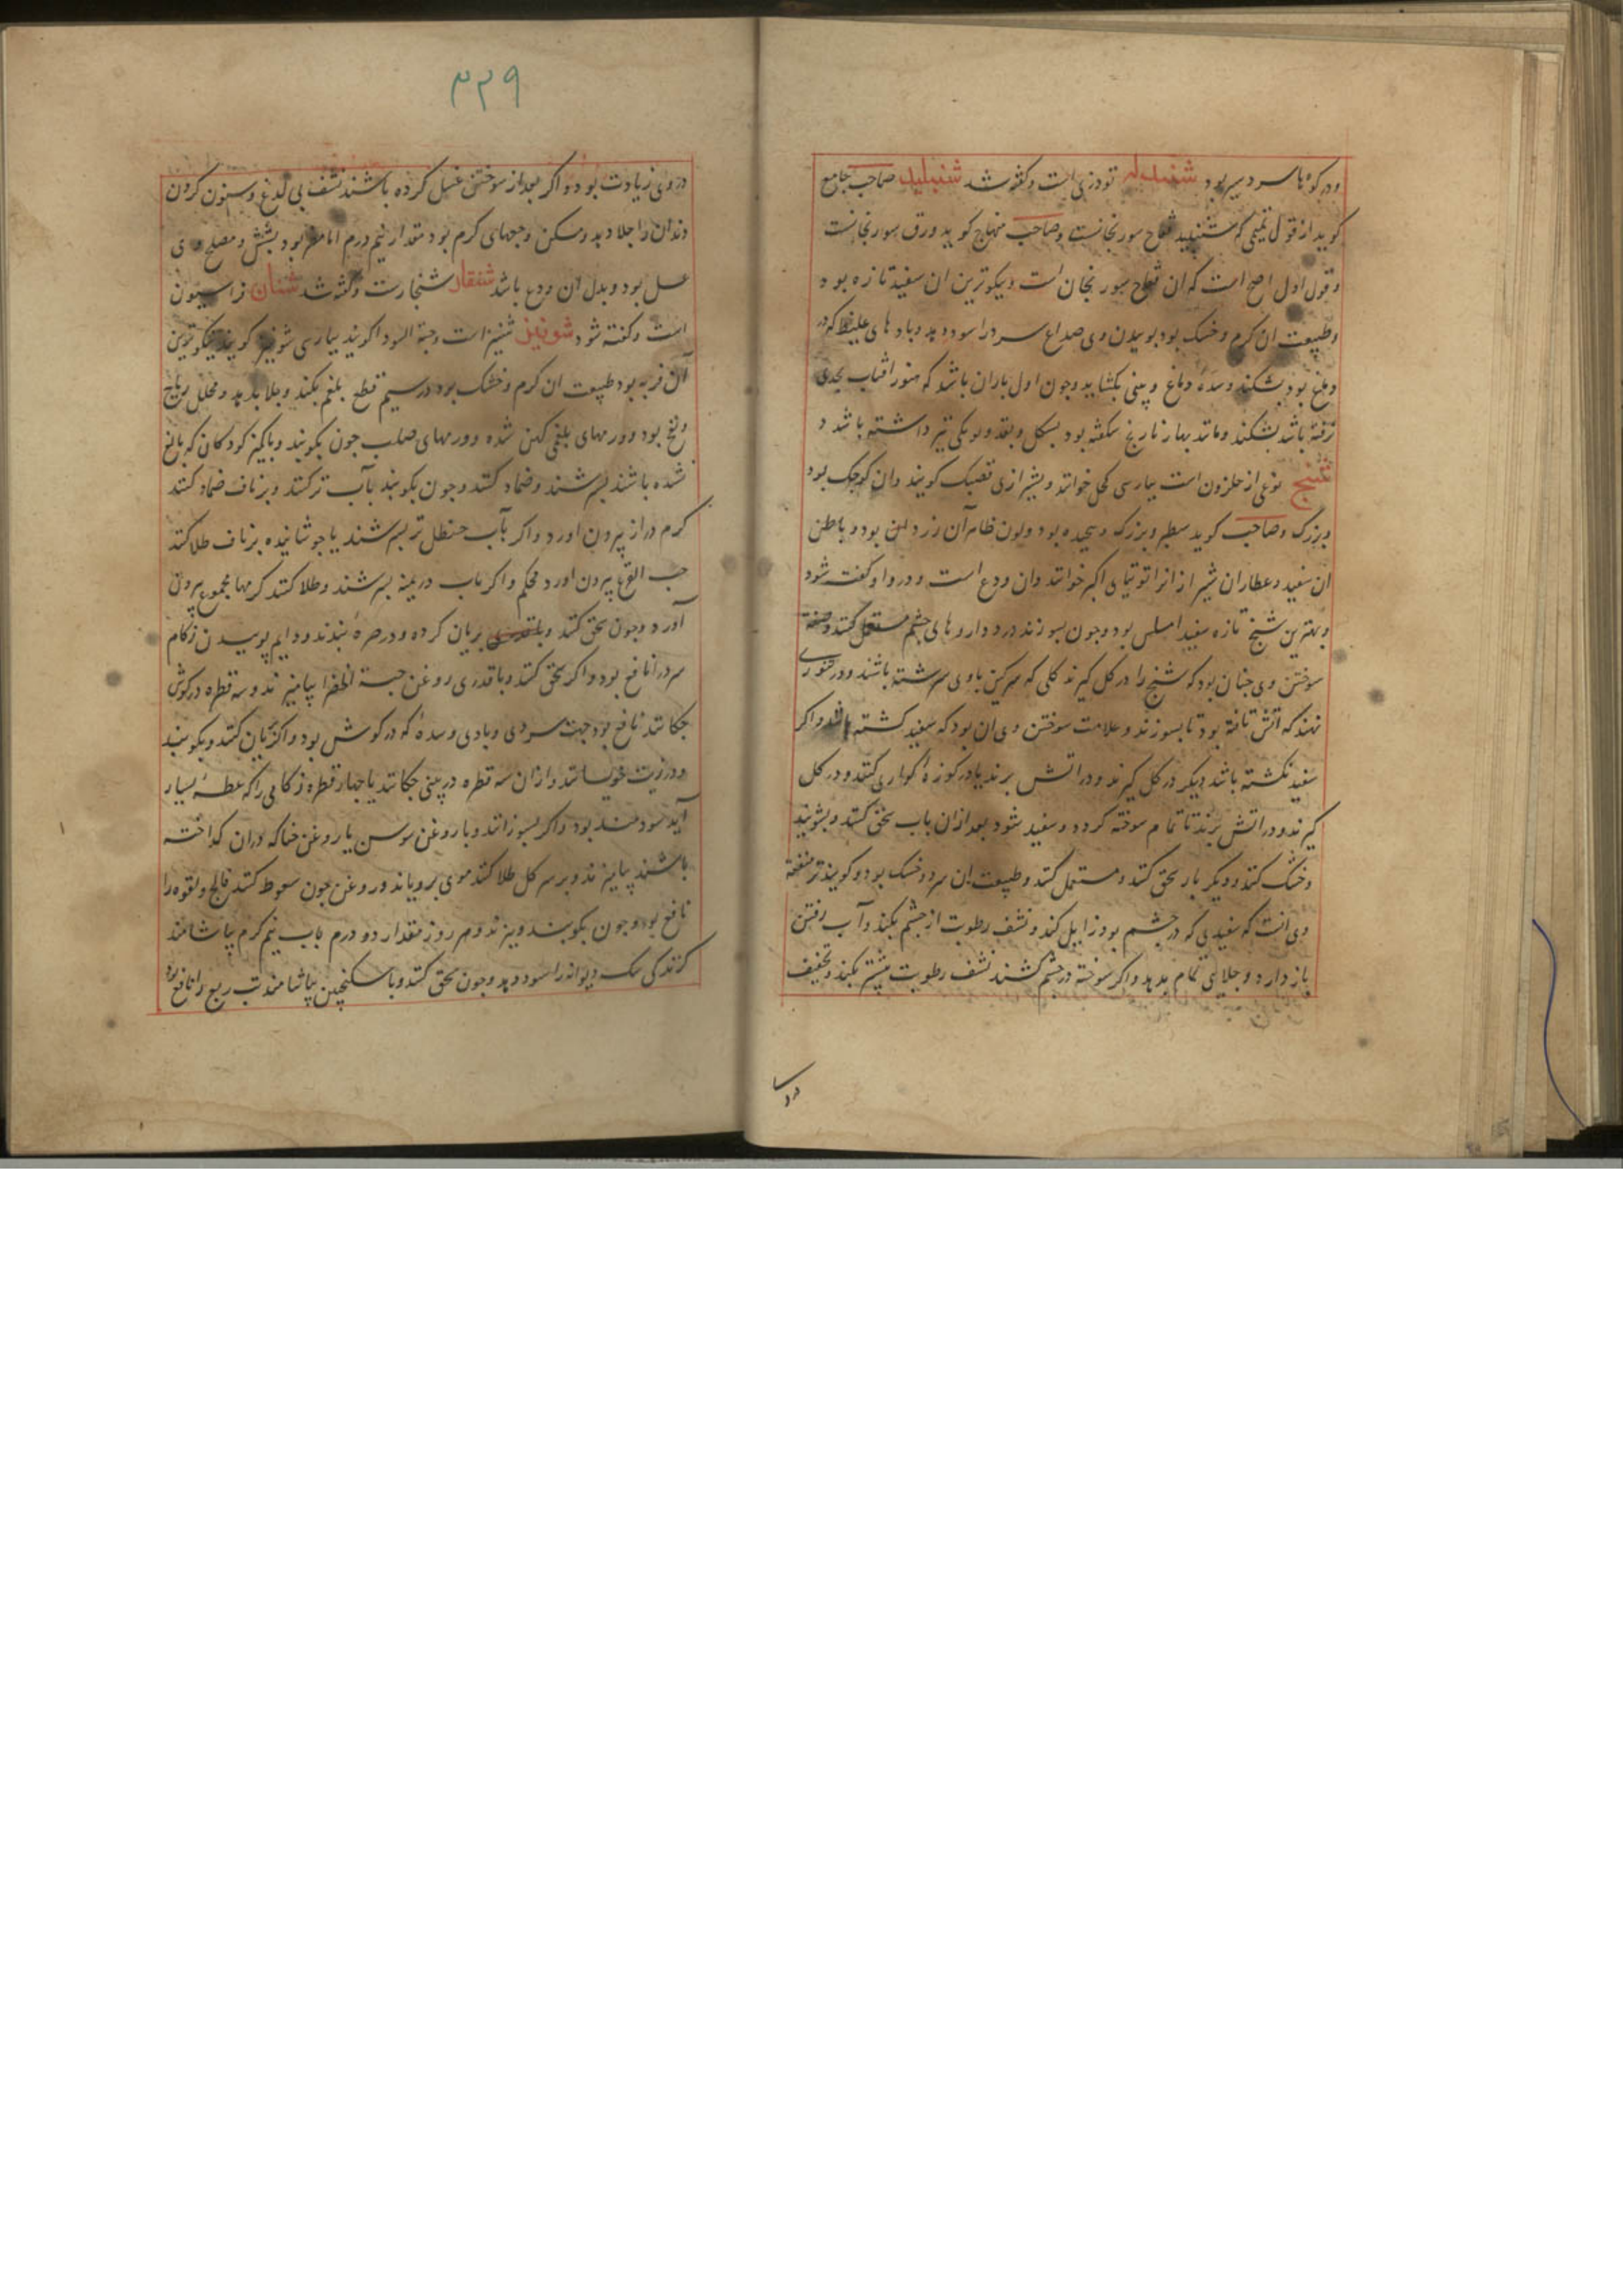 ودر کوه‌ها سردسیر بود شنبلیله تودری است و گفته شد شنبلید صاحب جامع
کوید از قول تمیمی که شنبلید فقاح سورنجانست وصاحب منهاج کوید ورق سورنجانست
وقول اول اصح است که ان فقاح سورنجان است ونیکوترین ان سفید تازه بود
وطبیعت ان کرم وخشک بود بوییدن وی صداع سرد را سود دهد وبادهای غلیظ که در
دماغ بود بشکند وسده دماغ وبینی بکشاید وچون اول باران باشد که هنوز افتاب بجدی
نرفته باشد بشکفد ومانند بهار نارنج شکفته بود بشکل وبقد وبوی تیز داشته باشد و
شنج نوعی از حلزون است بپارسی کجل خوانند وبشیرازی قضبک کویند وان کوچک بود
وبزرک وصاحب کوید سطبر وبزرک وپیچیده بود ولون ظاهر آن زرد بود وباطن
ان سفید وعطاران شیراز انرا توتیای اکبر خوانند وان ودع است ودر واو کفته شود
وبهترین شنج تازه سفید املس بود وچون بسوزند در داروهای چشم مستعمل کنند وصفة
سوختن وی چنان بود که شنج را در کل کیرند کلی که سرکین باوی سرشته باشند ودر تنوری
نهند که آتش تافته بود تا بسوزند وعلامت سوختن وی ان بود که سفید کشته باشد واکر
سفید نکشته باشد دیکر در کل کیرند ودر اتش برند یا در کوزه کنند ودر کل
کیرند ودر اتش برند تا تمام سوخته کردد وسفید شود بعد ازان باب سحق کنند وبشویند
وخشک کنند ودیکر بار سحق کنند ومستعمل کنند وطبیعت ان سرد وخشک بود وکویند تر منفعة
وی انست که سفیدیی که در چشم بود زایل کند ونشف رطوبت از چشم بکند وآب رفتن
باز دارد وجلای تمام بدهد واکر سوخته در چشم کشند نشف رطوبت بیشتر بکند وتجفیف
در وی
۳۲۹
در وی زیادت بود واکر بعد از سوختن غسل کرده باشند نشف بی لدغ وسنون کردن
دندان را جلا دهد ومسکن وجعهای کرم بود مقدار نیم درم اما مضر بود بشش ومصلح وی
عسل بود وبدل ان ودع باشد شنقار شنجارست وکفته شد شنان فراسیون
است وکفته شود شونیز شنیز است وحبة السودا کویند بپارسی شونیز کویند نیکوترین
آن فربه بود طبیعت ان کرم وخشک بود در سیم قطع بلغم بکند وجلا بدهد ومحلل ریاح
ونفخ بود وورمهای بلغمی کهن شده وورمهای صلب چون بکوبند وباکمیز کودکان که بالغ
شده باشند بسرشند وضماد کنند وچون بکوبند بآب ترکنند وبر ناف ضماد کنند
کرم دراز بیرون اورد واکر بآب حنظل تر بسرشند یا جوشانیده بر ناف طلا کنند
حب القرع بیرون اورد محکم واکر باب درمنه بسرشند وطلا کنند کرمها مجموع بیرون
آورد وچون سحق کنند بریان کرده ودر صره بندند ودایم بوییدن زکام
سرد را نافع بود واکر سحق کنند وباقدری روغن حبة الخضرا بیامیزند وسه قطره در کوش
چکانند نافع بود جهت سردی وبادی وسده که در کوش بود واکر بریان کنند وبکوبند
ودر زیت خویسانند وازان سه قطره در بینی چکانند یا چهار قطره زکامی را که عطسه بسیار
آید سودمند بود واکر بسوزانند وباروغن سوسن یا روغن حنا که دران کداخته
باشند بیامیزند وبر سر کل طلا کنند موی برویاند وروغن چون سعوط کنند فالج ولقوه را
نافع بود وچون بکوبند وبیزند وهر روز مقدار دو درم باب نیم کرم بیاشامند
کزندکی سک دیوانه را سود دهد وچون سحق کنند وباسکنجبین بیاشامند تب ربع را نافع بود